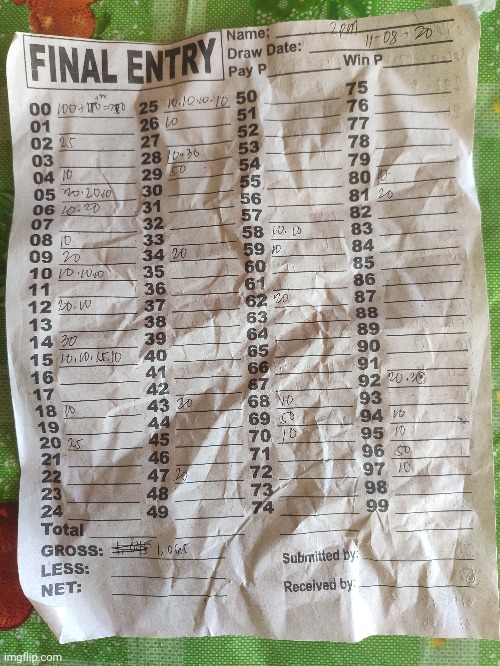 FINAL ENTRY
Name: 2pm
Draw Date: 11-08-20
Pay P Win P
00 100+
01
02 25
03
04 10
05 20.20.10
06 20.20
07
08 10
09 20
10 10.10.10
11
12 20.10
13
14 30
15 10.10.15.10
16
17
18 10
19
20 25
21
22
23
24
25 10.10.10.10
26 10
27
28 10+30
29 50
30
31
32
33
34 20
35
36
37
38
39
40
41
42
43 20
44
45
46
47 20
48
49
50
51
52
53
54
55
56
57
58 10.10
59 10
60
61
62 20
63
64
65
66
67
68 10
69 50
70 10
71
72
73
74
75
76
77
78
79
80 10
81 20
82
83
84
85
86
87
88
89
90
91
92 20.30
93
94 10
95 10
96 50
97 10
98
99
Total
GROSS: 1,065
LESS:
NET:
Submitted by:
Received by:
imgflip.com